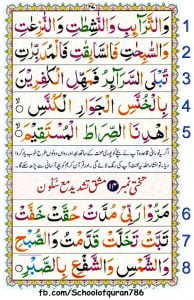 وَالتَّرَآئِبِ وَالنّٰشِطٰتِ وَالنّٰزِعٰتِ 1
وَالسّٰبِحٰتِ فَالسّٰبِقٰتِ فَالْمُدَبِّرٰتِ 2
تُبْلَى السَّرَآئِرُ فَمَهِّلِ الْكٰفِرِيْنَ 3
بِالْخُنَّسِ الْجَوَارِ الْكُنَّسِ 4
اِهْدِنَا الصِّرَاطَ الْمُسْتَقِيْمَ 5
تختی نمبر ۱۴ مشق تشدید مع سکون
مَرُّوْا رَبِّيْ مُدَّتْ حُقَّتْ خَفَّتْ 6
تَبَّتْ تَخَلَّتْ قَدَّمَتْ وَالصُّبْحِ 7
وَالشَّمْسِ وَالشَّفْعِ بِالصَّبْرِ 8
fb.com/Schoolofquran786/